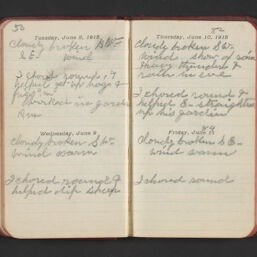 80
Tuesday, June 8, 1915
Cloudy broken SW-
S E- wind
I chored round &
helped get up hogs &
Worked in garden
Wednesday, June 9
Cloudy broken SW-
wind warm
I chored round &
helped dip sheep
82
Thursday, June 10, 1915
Cloudy broken SW.
wind show of rain
Heavy thunder &
rain in eve
I chored round &
helped E- straighten
up his garden
Friday, June 11
84
Cloudy broken S E-
wind warm
I chored round